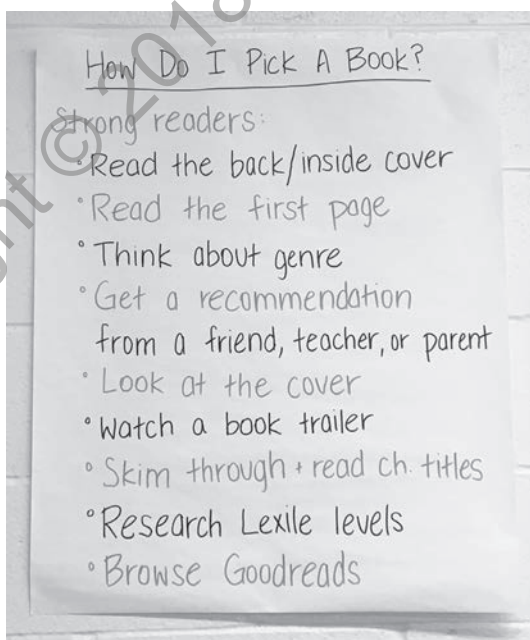 How Do I Pick A Book?
Strong readers:
• Read the back/inside cover
• Read the first page
• Think about genre
• Get a recommendation
from a friend, teacher, or parent
• Look at the cover
• Watch a book trailer
• Skim through + read ch. titles
• Research Lexile levels
• Browse Goodreads
© 2018